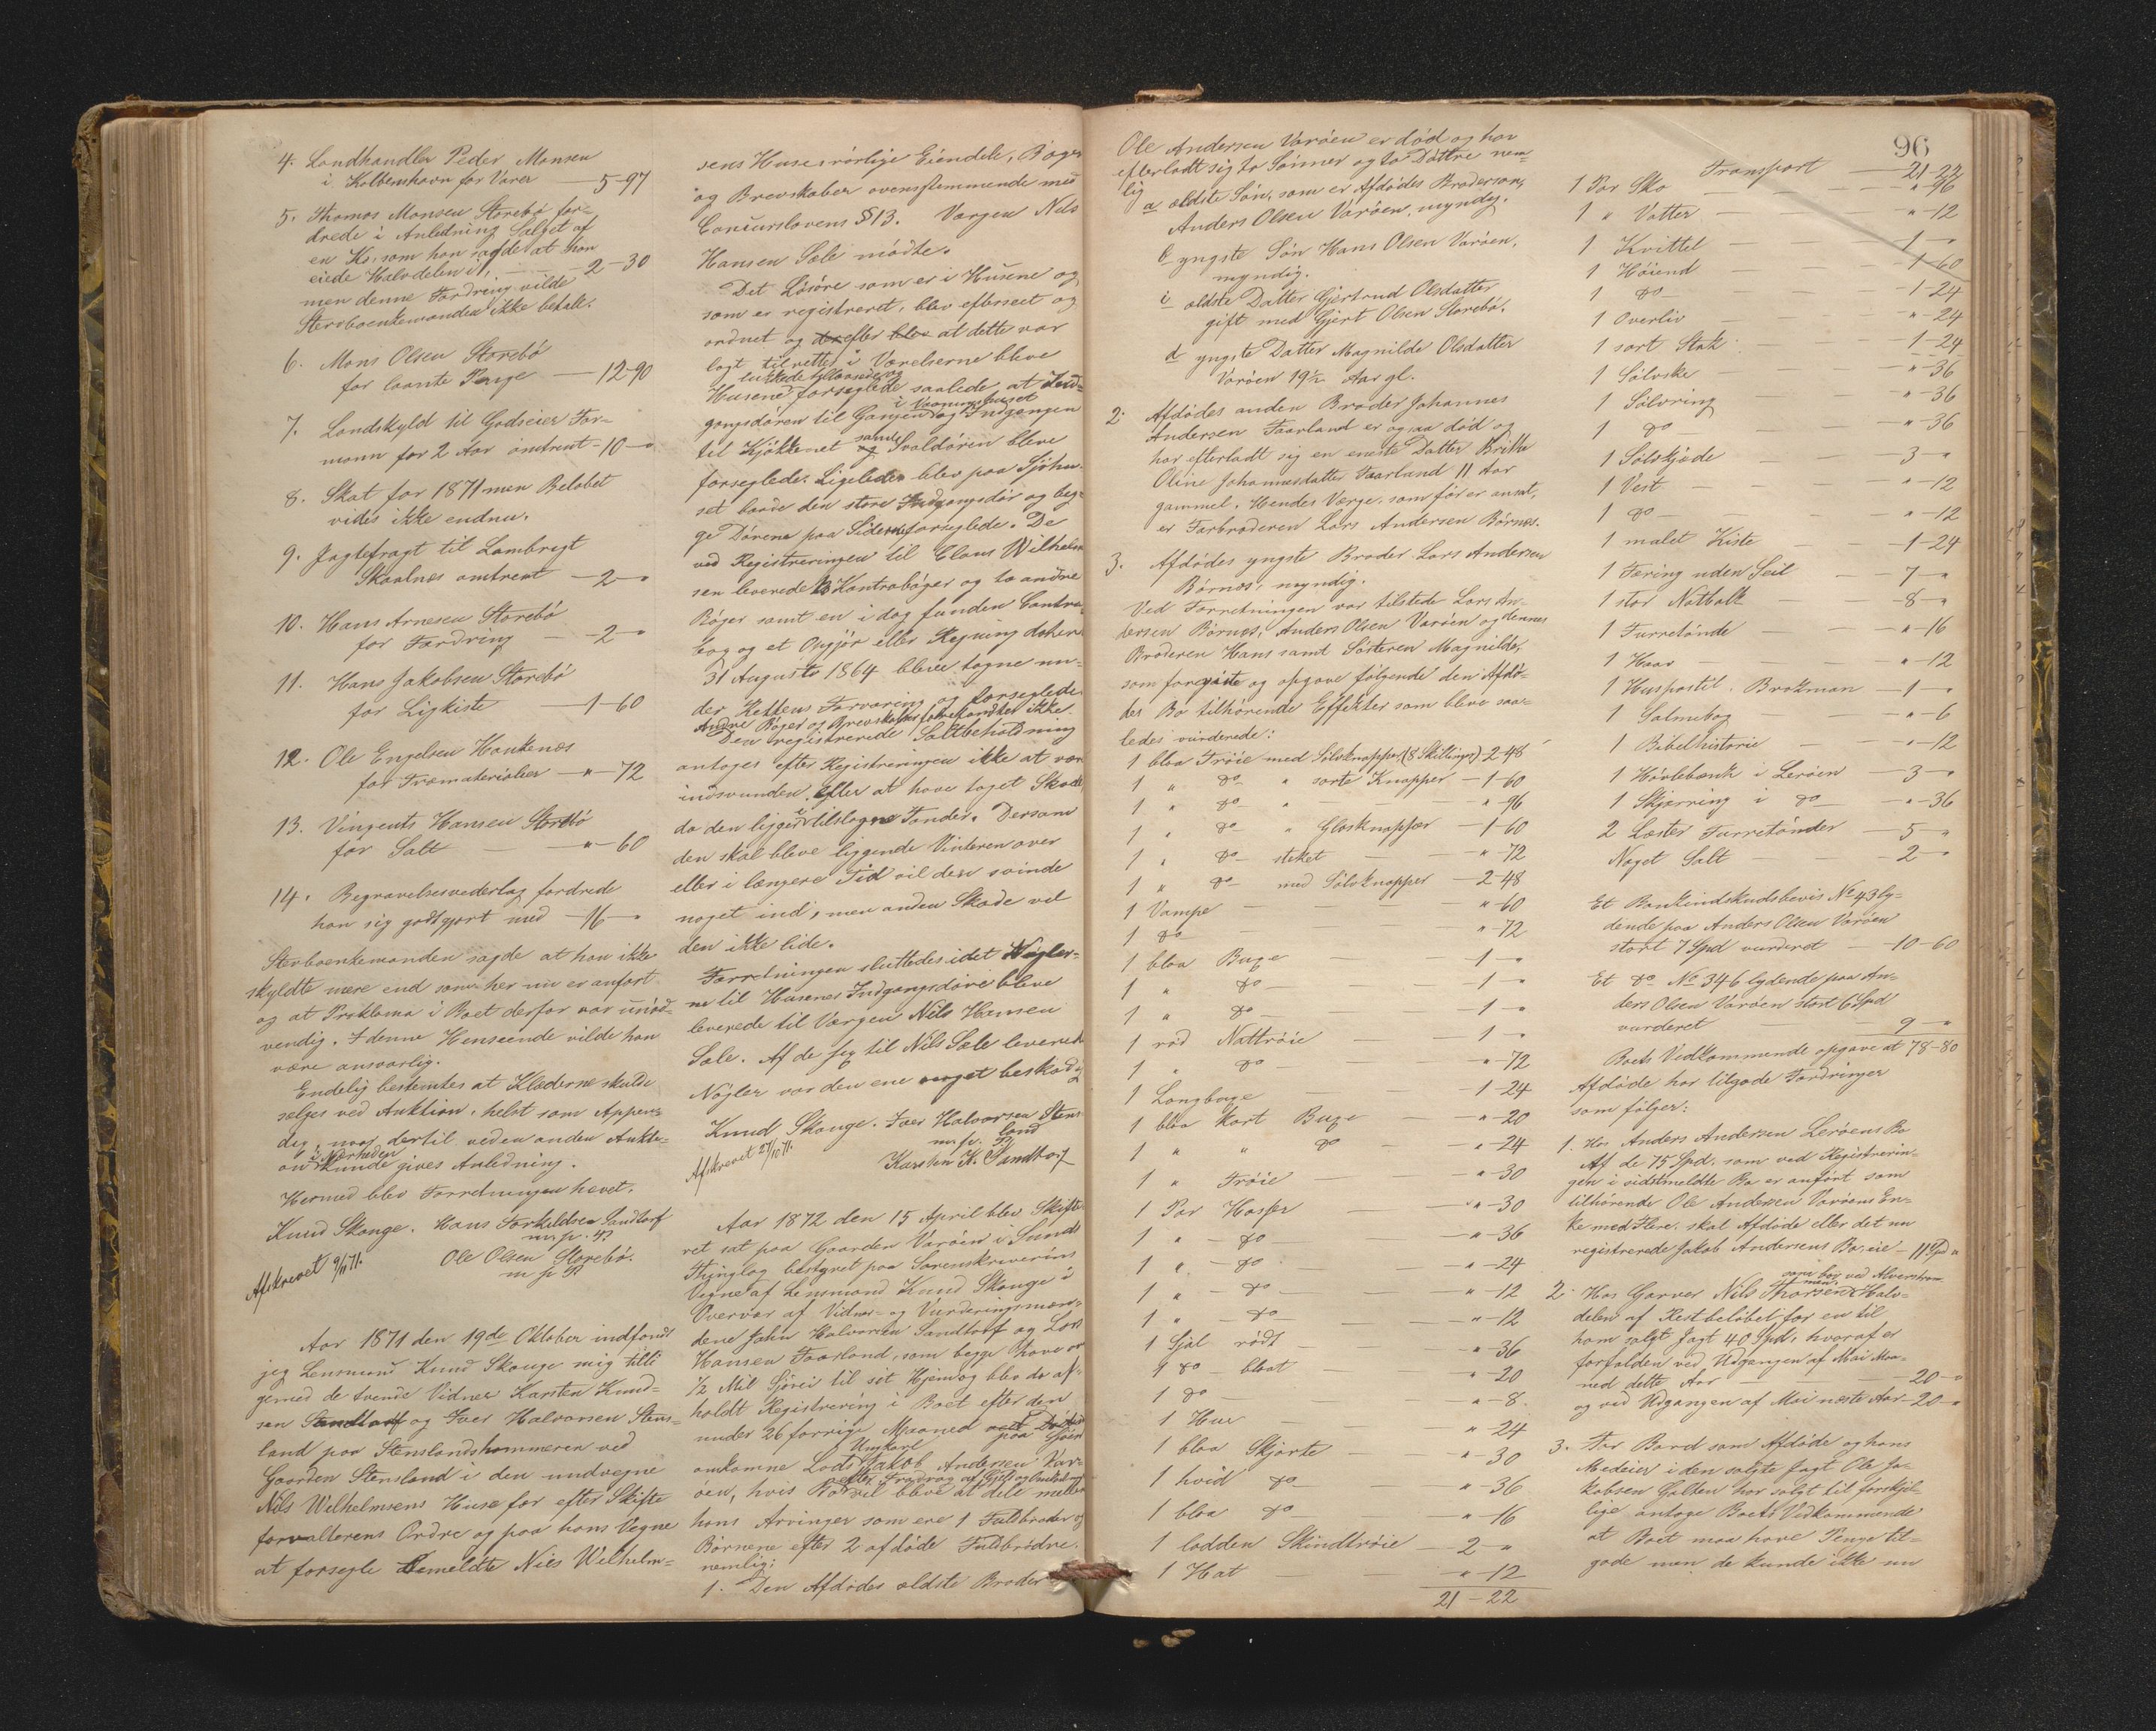 4. Landhandler Peder Monsen
i Kolbenshavn for Varer — 5-97
5. Thomas Monsen Storebø for-
drede i Anledning Salget af
en Ko, som han sagde at han
eiede Halvdelen i, — 2-30
men denne Fordring vilde
Stervboenkemanden ikke betale.
6. Mons Olsen Storebø
for laante Penge — 12-90
7. Landskyld til Godseier For-
mann for 2 Aar omtrent - 10 — "
8. Skat for 1871 men Beløbet
vides ikke endnu.
9. Jagtefragt til Lambregt
Skaalnes omtrent — 2 — "
10. Hans Arnesen Storebø
for Fordring — 2 — "
11. Hans Jakobsen Storebø
for Ligkiste — 1-60
12. Ole Engelsen Haukenæs
for Træmaterialier — " — 72
13. Vingents Hansen Storebø
for Salt — " — 60
14. Begravelsesvederlag fordrede
han sig godtgjort med — 16 — "
Stervboenkemanden sagde at han ikke
skyldte mere end som her nu er anført
og at Proklama i Boet derfor var unød-
vendig. I denne Henseende vilde han
være ansvarlig.
Endelig bestemtes at Klæderne skulde
sælges ved Auktion, helst som Appen-
dix, naar dertil ved en anden Aukti-
on i Nærheden kunde gives Anledning.
Hermed blev Forretningen hævet.
Knud Skouge. Hans Torkildsen Sandtorf
m. p. P.
Ole Olsen Storebø.
m p P
Afskrevet 9/11 71.
Aar 1871 den 19de Oktober indfandt
jeg Lensmand Knud Skouge mig tilli-
gemed de tvende Vidner Karsten Knud-
sen Sandtorf og Iver Halvorsen Stens-
land paa Stenslandshammeren ved
Gaarden Stensland i den undvegne
Nils Wilhelmsens Huse for efter Skifte
forvalterens Ordre og paa hans Vegne
at forsegle bemeldte Nils Wilhelm-
sens Huse, rørlige Eiendele, Bøger
og Brevskaber overensstemmende med
Concurslovens § 13. Værgen Nils
Hansen Sæle mødte.
Det Løsøre som er i Husene og
som er registreret, blev efterseet og
ordnet og derefter blev at dette var
lagt tilrette i Værelserne bleve
lukkede tillaasede og
Husene forseglede saalede, at Ind-
gangsdøren til Gangen i Vaaningshuset og Indgangen
til Kjøkkenet samt og Svaldøren bleve
forseglede. Ligeledes blev paa Sjøhu-
set baade den store Indgangsdør og beg-
ge Dørene paa Siderne forseglede. De
ved Registreringen til Claus Wilhelm-
sen leverede 13 Kontrabøger og to andre
Bøger samt en i dag funden Contra-
bog og et Opgjør eller Regning dateret
31 Augusto 1864 bleve tagne un-
der Rettens Forvaring og forseglede
Andre Bøger og Brevskaber forefandtes ikke.
Den registrerede Saltbeholdning
antoges efter Registreringen ikke at være
indsvunden, eller at have taget Skade
da den ligger i tilslagne Tønder. Dersom
den skal bleve liggende Vinteren over
eller i længere Tid vil den svinde
noget ind, men anden Skade vil
den ikke lide.
Forretningen sluttedes idet Nøgler-
ne til Husenes Indgangsdøre bleve
leverede til Værgen Nils Hansen
Sæle. Af de jeg til Nils Sæle leverede
Nøgler var den ene noget beskadig
Knud Skouge. Iver Halvorsen Stens-
land
m. p. P.
Afskrevet 27/10 71.
Karsten K. Sandtorf
Aar 1872 den 15 April blev Skifte-
ret sat paa Gaarden Varøen i Sunds
Thinglag bestyret paa Sorenskriverens
Vegne af Lensmand Knud Skouge i
Overvær af Vidner- og Vurderingsmæn-
dene John Halvorsen Sandtorf og Lars
Hansen Faarland, som begge have over
1/2 Mil Sjøvei til sit Hjem og blev da af-
holdt Registrering i Boet efter den
under 26 forrige Maaned paa Søen
omkomne Lods Ungkarl Jakob Andersen Var-
øen, hvis Bo efter Fradrag af Gjæld og Omkostninger vil bleve at dele mellem
hans Arvinger som ere 1 Fuldbroder og
Børnene efter 2 afdøde Fuldbrødre.
nemlig:
1. Den Afdødes ældste Broder
96
Ole Andersen Varøen er død og har
efterladt sig to Sønner og to Døttre nem-
lig a ældste Søn, som er Afdødes Brodersøn,
Anders Olsen Varøen, myndig.
b yngste Søn Hans Olsen Varøen,
myndig.
c ældste Datter Gjertrud Olsdatter
gift med Gjert Olsen Storebø.
d yngste Datter Magnilde Olsdatter
Varøen 19 1/2 Aar gl.
2. Afdødes anden Broder Johannes
Andersen Faarland er ogsaa død og
har efterladt sig en eneste Datter Brithe
Oline Johannesdatter Faarland 11 Aar
gammel. Hendes Værge, som før er ansat,
er Farbroderen Lars Andersen Børnes.
3. Afdødes yngste Broder Lars Andersen
Børnes, myndig.
Ved Forretningen var tilstede Lars An-
dersen Børnes, Anders Olsen Varøen og dennes
Broderen Hans samt Søsteren Magnilde,
som foregiste og opgave følgende den Afdø-
des Bo tilhørende Effekter som bleve saa-
ledes vurderede:
1 blaa Trøie med Sølvknapper (8 Skillinge) 2-48
1 " do " sorte Knapper — 1-60
1 " do " — " - 96
1 " do " Glasknapper — 1-60
1 " do steket — " - 72
1 " do med Sølvknapper — 2-48
1 Vampe — " - 60
1 do — " - 72
1 blaa Buxe — 1 - "
1 " do — 1 - "
1 " do — 1 - "
1 rød Nattrøie — 1 - "
1 " do — " - 72
1 Longbuxe — 1-24
1 blaa kort Buxe — " - 20
1 " " do — " - 24
1 " Trøie — " - 30
1 Par Hoser — " - 30
1 " - do — " - 36
1 " - do — " - 24
1 " - do — " - 12
1 " - do — " - 12
1 Sjal rødt — " - 36
1 do blaat — " - 20
1 do — " - 8
1 Hue — " - 24
1 blaa Skjorte — " - 30
1 hvid do — " - 36
1 blaa do — " - 16
1 lodden Skindtrøie — 2 - "
1 Hat — " - 12
21 - 22
Transport — 21-22
1 Par Sko — " - 96
1 " Vatter — " - 12
1 Kvittel — 1 - "
1 Høiend — 1-60
1 do — 1-24
1 Overliv — " - 24
1 sort Stak — 1-24
1 Sølvske — " - 36
1 Sølvring — " - 36
1 do — " - 36
1 Sølvkjæde — 3 - "
1 Vest — " - 12
1 do — " - 12
1 malet Kiste — 1-24
1 Færing uden Seil — 7 - "
1 stor Notbalk — 8 - "
1 Turretønde — " - 16
1 Haav — " - 12
1 Huspostil. Brokman — 1 - "
1 Salmebog — " - 6
1 Bibelhistorie — " - 12
1 Høvlebænk i Lerøen — 3 - "
1 Skjærring i do — " - 36
2 Læster Turretønder — 5 - "
Noget Salt — 2 - "
Et Bankindskudsbevis No 43 ly-
dende paa Anders Olsen Varøen
stort 7 Spd vurderet — 10-60
Et do No 346 lydende paa An-
ders Olsen Varøen stort 6 Spd
vurderet — 9 - "
Boets Vedkommende opgave at 78-80
Afdøde har tilgode Fordringer
som følger:
1. Hos Anders Andersen Lerøens Bo
Af de 75 Spd. som ved Registrerin-
gen i sidstmeldte Bo er anført som
tilhørende Ole Andersen Varøens En-
ke med Flere, skal Afdøde eller det nu
registrerede Jakob Andersens Bo, eie — 11 Spd "
2. Hos Garver Nils Thorsen som bor ved Alverstrøm-
men, Halv-
delen af Restbeløbet for en til
ham solgt Jagt 40 Spd, hvoraf er
forfalden ved Udgangen af Mai Maa-
ned dette Aar — 20 - "
og ved Udgangen af Mai næste Aar — 20 - "
3. For Bord som Afdøde og hans
Medeier i den solgte Jagt Ole Ja-
kobsen Hjelten har solgt til forskjel-
lige antoge Boets Vedkommende
at Boet maa have Penge til-
gode men de kunde ikke nu